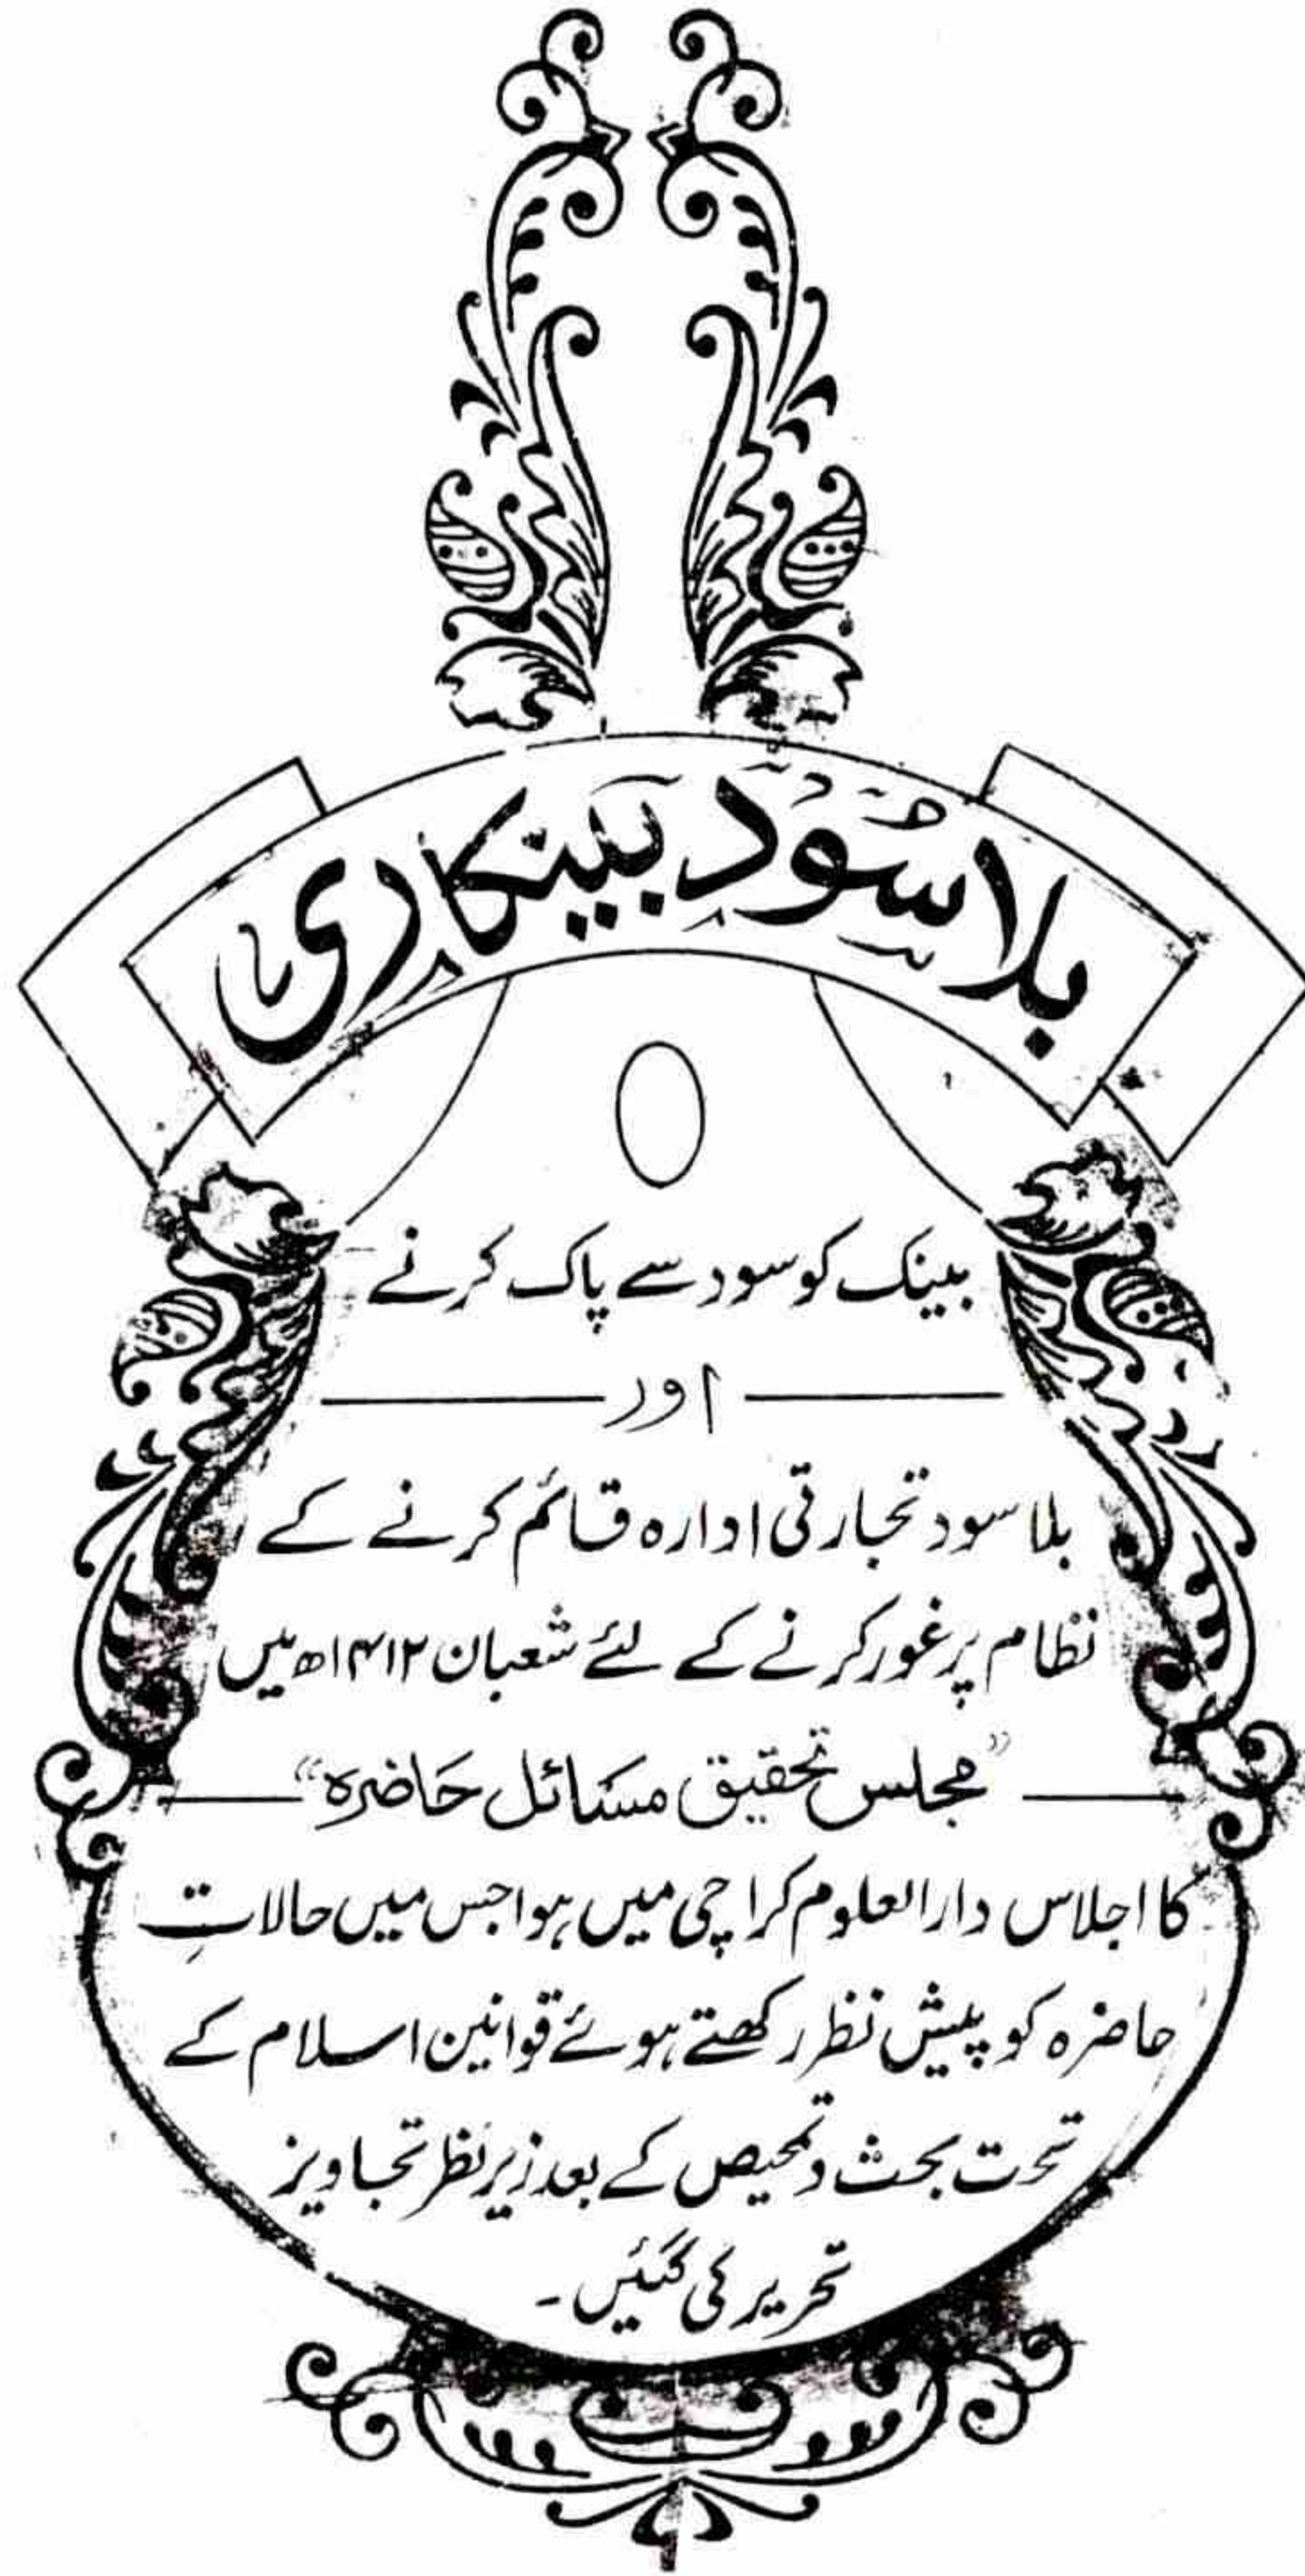 بلاسُود بینکاری
بینک کو سود سے پاک کرنے
اور
بلا سود تجارتی ادارہ قائم کرنے کے
نظام پر غور کرنے کے لئے شعبان ۱۴۱۲ھ میں
”مجلس تحقیق مسَائل حَاضرہ“
کا اجلاس دارالعلوم کراچی میں ہوا جس میں حالاتِ
حاضرہ کو پیش نظر رکھتے ہوئے قوانین اسلام کے
تحت بحث و تمحیص کے بعد زیر نظر تجاویز
تحریر کی گئیں۔